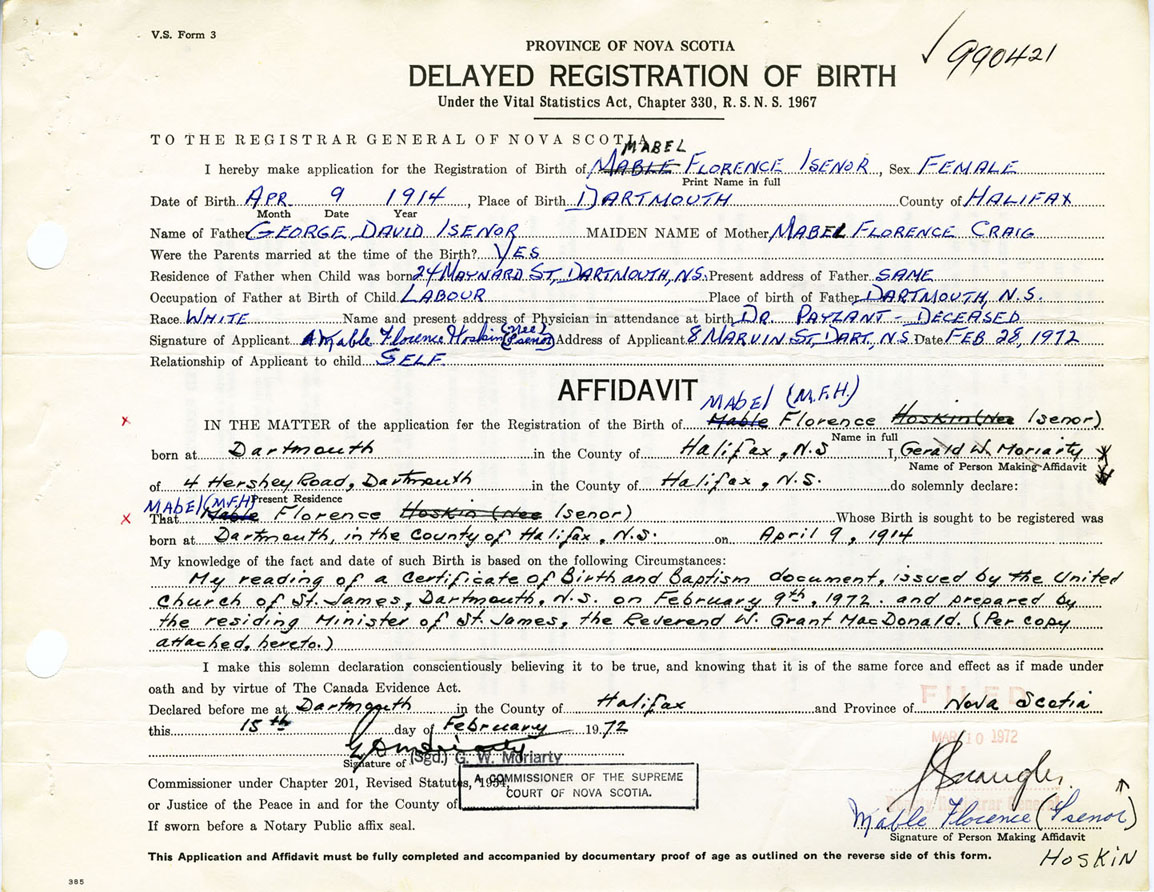 V.S. Form 3
PROVINCE OF NOVA SCOTIA
990421
DELAYED REGISTRATION OF BIRTH
Under the Vital Statistics Act, Chapter 330, R.S.N.S. 1967
TO THE REGISTRAR GENERAL OF NOVA SCOTIA
MABEL
I hereby make application for the Registration of Birth of MABLE FLORENCE ISENOR, Sex FEMALE
Print Name in full
Date of Birth APR 9 1914, Place of Birth DARTMOUTH County of HALIFAX
Month Date Year
Name of Father GEORGE DAVID ISENOR MAIDEN NAME of Mother MABEL FLORENCE CRAIG
Were the Parents married at the time of the Birth? YES
Residence of Father when Child was born 24 MAYNARD ST, DARTMOUTH, N.S. Present address of Father SAME
Occupation of Father at Birth of Child LABOUR Place of birth of Father DARTMOUTH, N.S.
Race WHITE Name and present address of Physician in attendance at birth DR. PAYZANT - DECEASED
Signature of Applicant Mable Florence Hoskin (nee) Isenor) Address of Applicant 8 MARVIN ST, DART, N.S. Date FEB 28, 1972
Relationship of Applicant to child SELF
AFFIDAVIT
MABEL (M.F.H.)
x IN THE MATTER of the application for the Registration of the Birth of Mable Florence Hoskin (Nee Isenor)
Name in full
born at Dartmouth in the County of Halifax, N.S I, Gerald W. Moriarty
Name of Person Making Affidavit
of 4 Hershey Road, Dartmouth in the County of Halifax, N.S. do solemnly declare:
Present Residence
MABEL (M.F.H)
x That Mable Florence Hoskin (Nee Isenor) Whose Birth is sought to be registered was
born at Dartmouth, in the County of Halifax, N.S. on April 9, 1914
My knowledge of the fact and date of such Birth is based on the following Circumstances:
My reading of a Certificate of Birth and Baptism document, issued by the United
Church of St. James, Dartmouth, N.S. on February 9th, 1972. and prepared by
the residing Minister of St. James, the Reverend W. Grant MacDonald. (Per copy
attached, hereto.)
I make this solemn declaration conscientiously believing it to be true, and knowing that it is of the same force and effect as if made under
oath and by virtue of The Canada Evidence Act.
FILED
Declared before me at Dartmouth in the County of Halifax and Province of Nova Scotia
this 15th day of February 1972
MAR 10 1972
Signature of (Sgd.) G. W. Moriarty
Commissioner under Chapter 201, Revised Statutes, 1954,
A COMMISSIONER OF THE SUPREME
COURT OF NOVA SCOTIA.
or Justice of the Peace in and for the County of
Mable Florence (Isenor)
If sworn before a Notary Public affix seal.
Signature of Person Making Affidavit
HOSKIN
This Application and Affidavit must be fully completed and accompanied by documentary proof of age as outlined on the reverse side of this form.
385